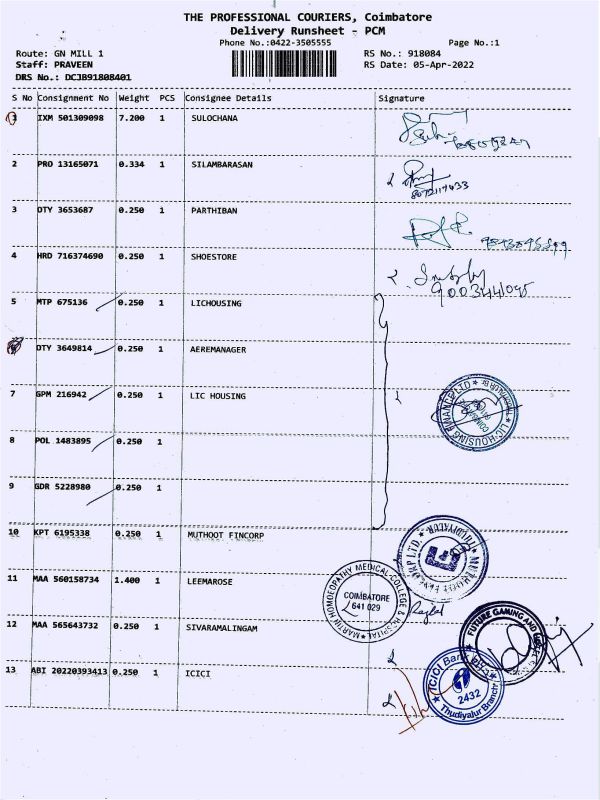 THE PROFESSIONAL COURIERS, Coimbatore
Delivery Runsheet - PCM
Phone No.:0422-3505555
Page No.:1
Route: GN MILL 1
RS No.: 918084
Staff: PRAVEEN
RS Date: 05-Apr-2022
DRS No.: DCJ891808401
S No Consignment No Weight PCS Consignee Details Signature
1 IXM 501309098 7.200 1 SULOCHANA
2 PRO 13165071 0.334 1 SILAMBARASAN
3 DTY 3653687 0.250 1 PARTHIBAN
4 HRD 716374690 0.250 1 SHOESTORE
9003441095
5 MTP 675136 0.250 1 LICHOUSING
DTY 3649814 0.250 1 AEREMANAGER
7 GPM 216942 0.250 1 LIC HOUSING
LIC HOUSING FINANCE LTD
8 POL 1483895 0.250 1
9 GDR 5228980 0.250 1
10 KPT 6195338 0.250 1 MUTHOOT FINCORP
11 MAA 560158734 1.400 1 LEEMAROSE
MARTIN HOMOEOPATHY MEDICAL COLLEGE & HOSPITAL
COIMBATORE
641 029
12 MAA 565643732 0.250 1 SIVARAMALINGAM
FUTURE GAMING AND
13 ABI 20220393413 0.250 1 ICICI
ICICI Bank Ltd
2432
Thudiyalur Branch